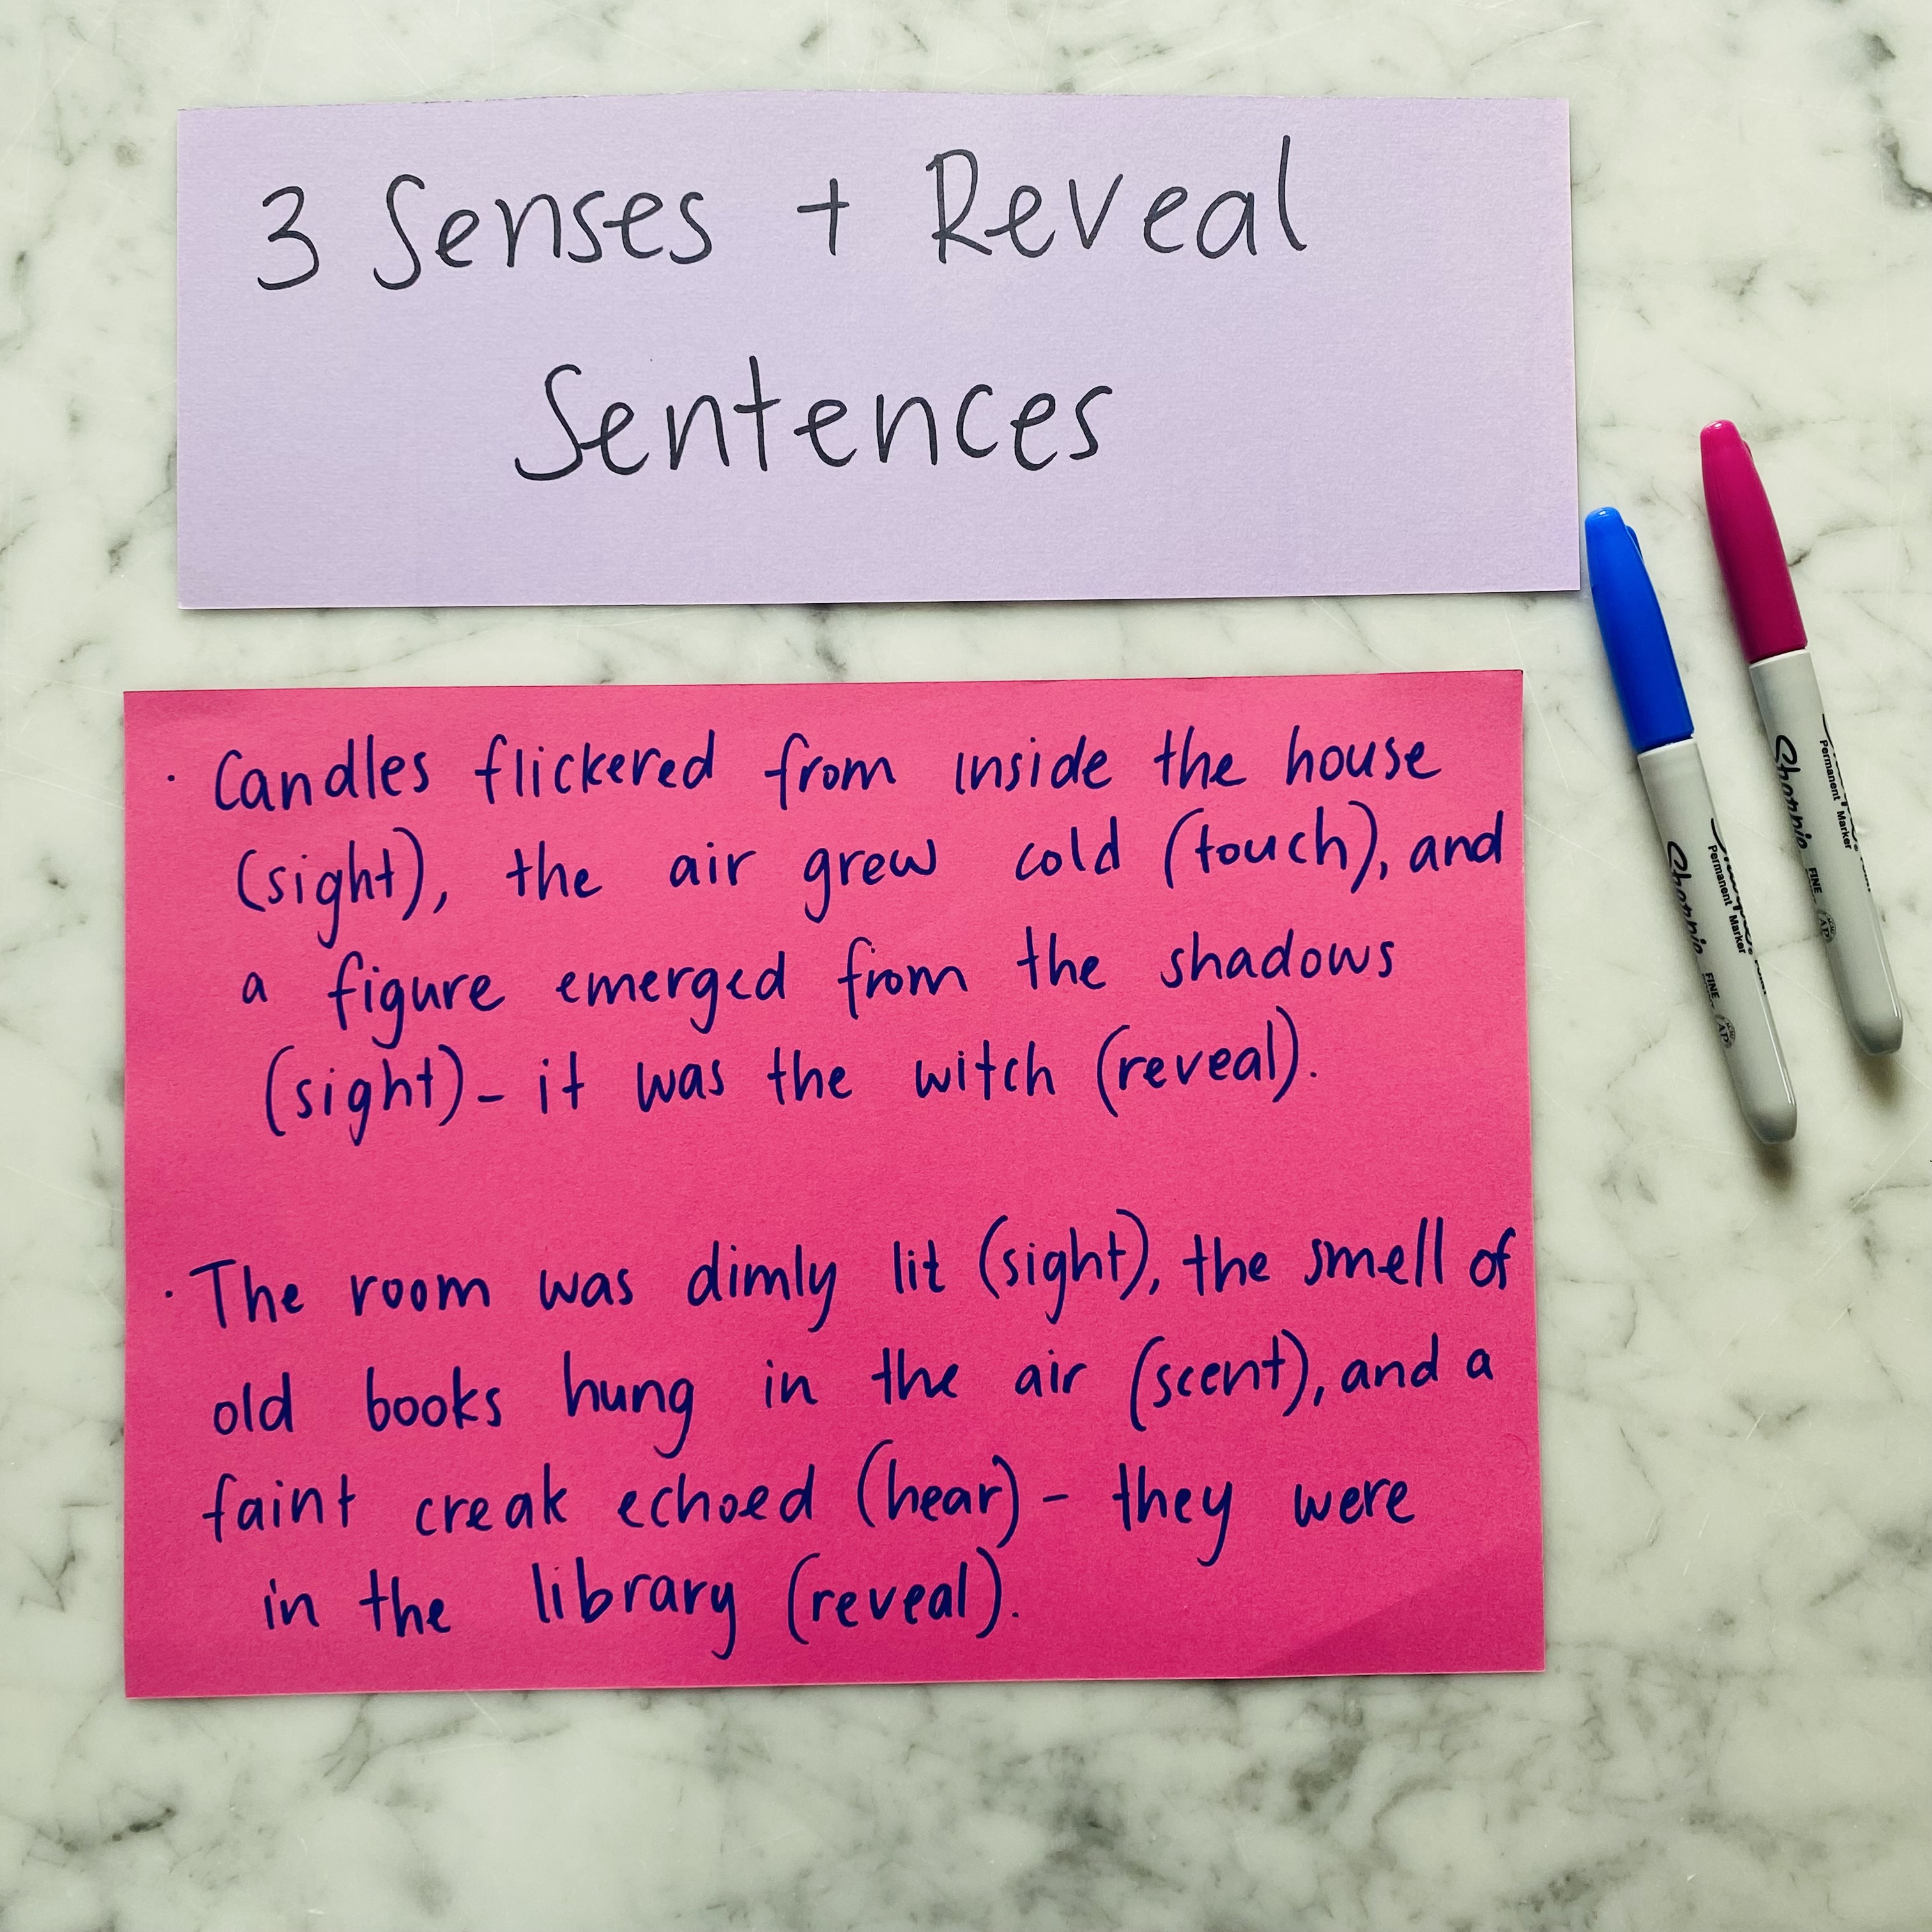 3 Senses + Reveal
Sentences
· Candles flickered from inside the house
(sight), the air grew cold (touch), and
a figure emerged from the shadows
(sight) - it was the witch (reveal).
· The room was dimly lit (sight), the smell of
old books hung in the air (scent), and a
faint creak echoed (hear) - they were
in the library (reveal).
Sharpie
Permanent Marker
FINE
AP
Sharpie
Permanent Marker
FINE
AP